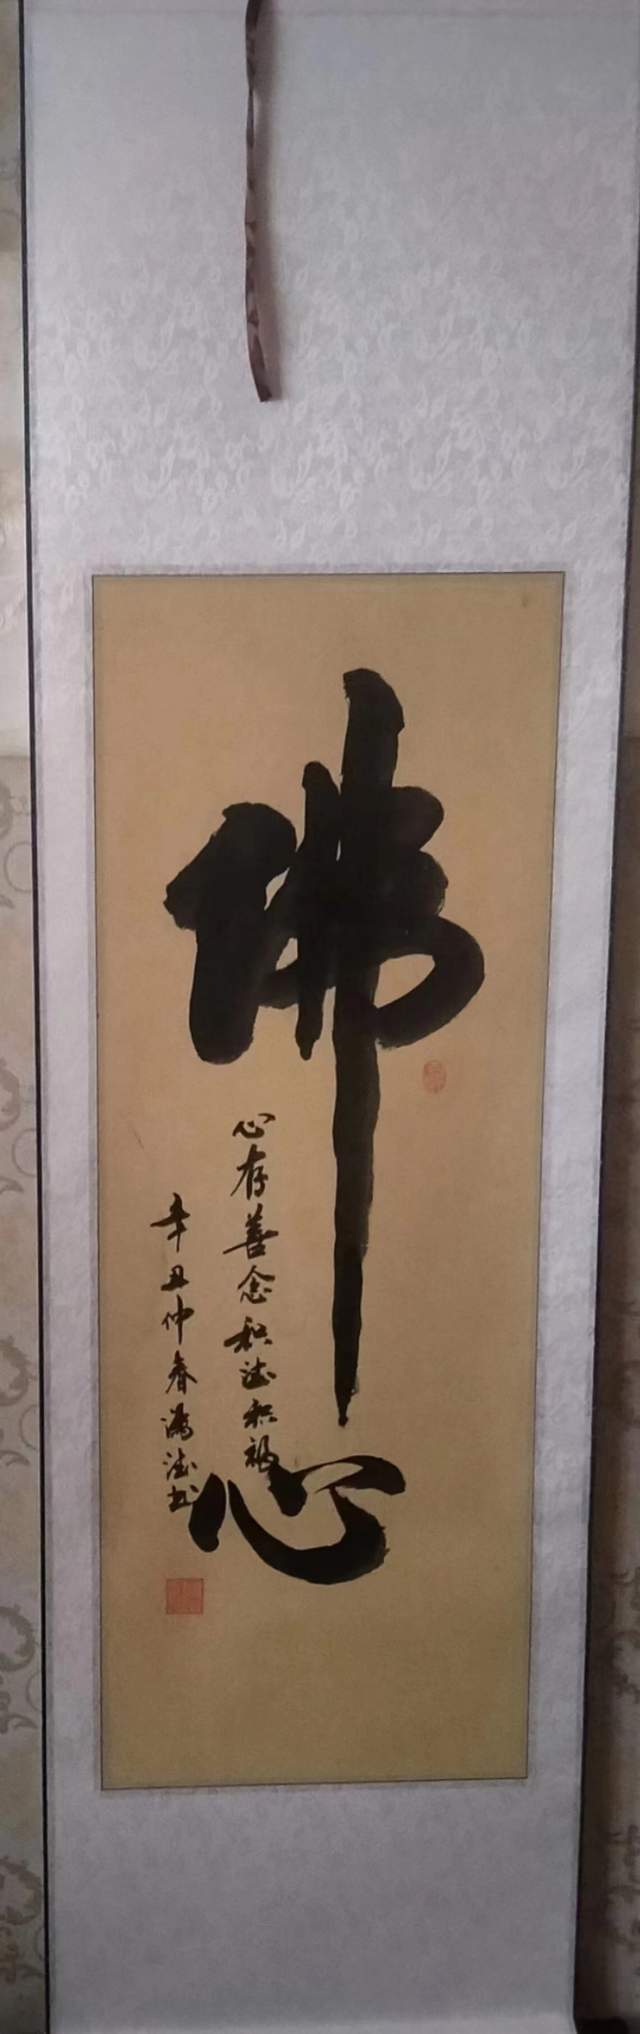 佛心
心存善念积德积福
辛丑仲春鸿德书